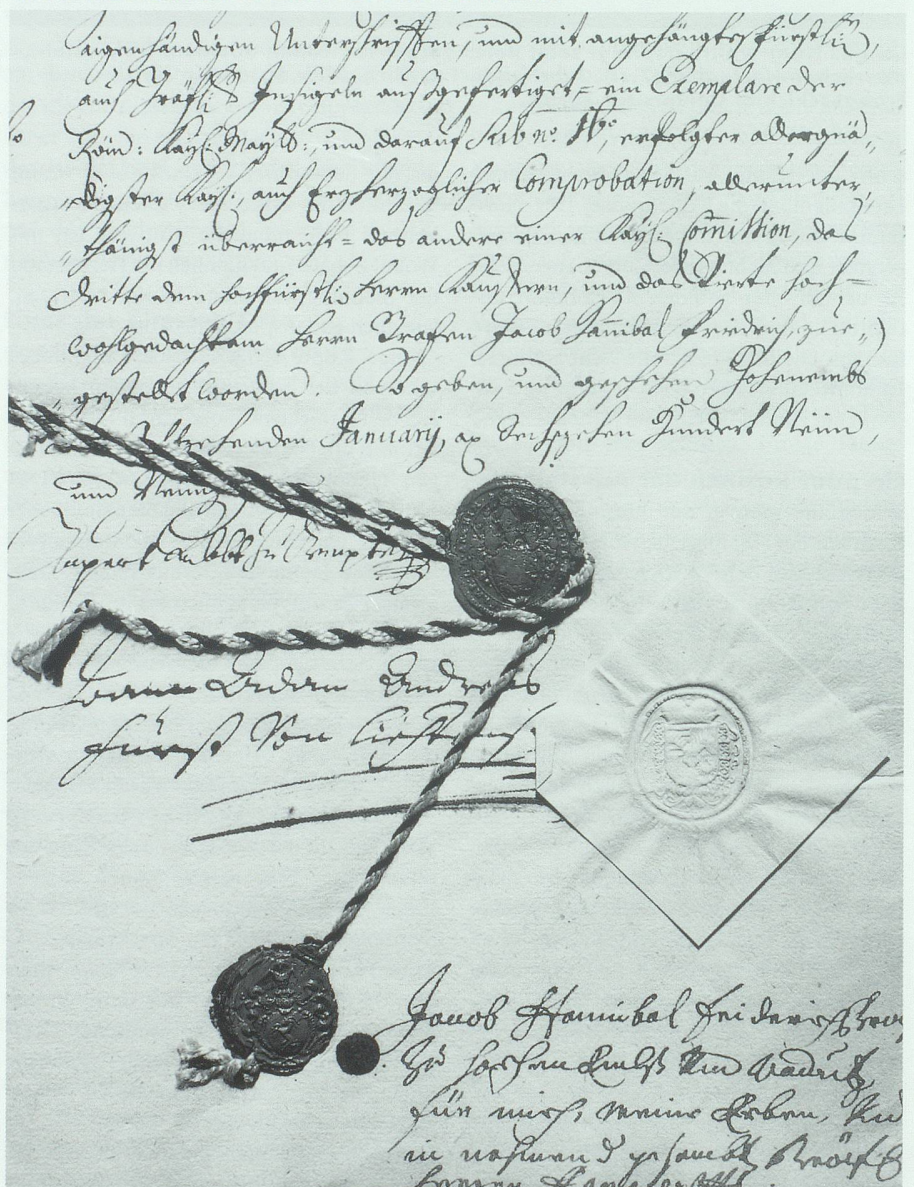 aigenhändigen Unterschrifften, und mit angehängtes fürstl:
auch Gräfl: Insigeln außgefertiget = ein Exemplare der
Röm: Kayl: May:, und darauf sub no. erfolgter allergnä„
„digster Kayl:, auch Erzherzoglicher Comprobation, allerunter„
„thänigst überraicht = das andere einer Kayl: Com̄ission, das
dritte dem hochfürstl: Herrn Kauffern, und das Vierte hoch=
wohlgedachtem Herrn Grafen Jacob Han̄ibal Friedrich, zue„
„gestellt worden. So geben, und geschehen Hohenembs
Januarij, ao Sechszehen Hundert Neün„
und
Rupert Abbt zu Kempten
Joann Adam Andreas
Fürst Von Liechtens
Jacob Hannibal Feiderich Grav
zu hochen Embß Und Vadutz
für mich, meine Erben, Un
in nahmen gesambt